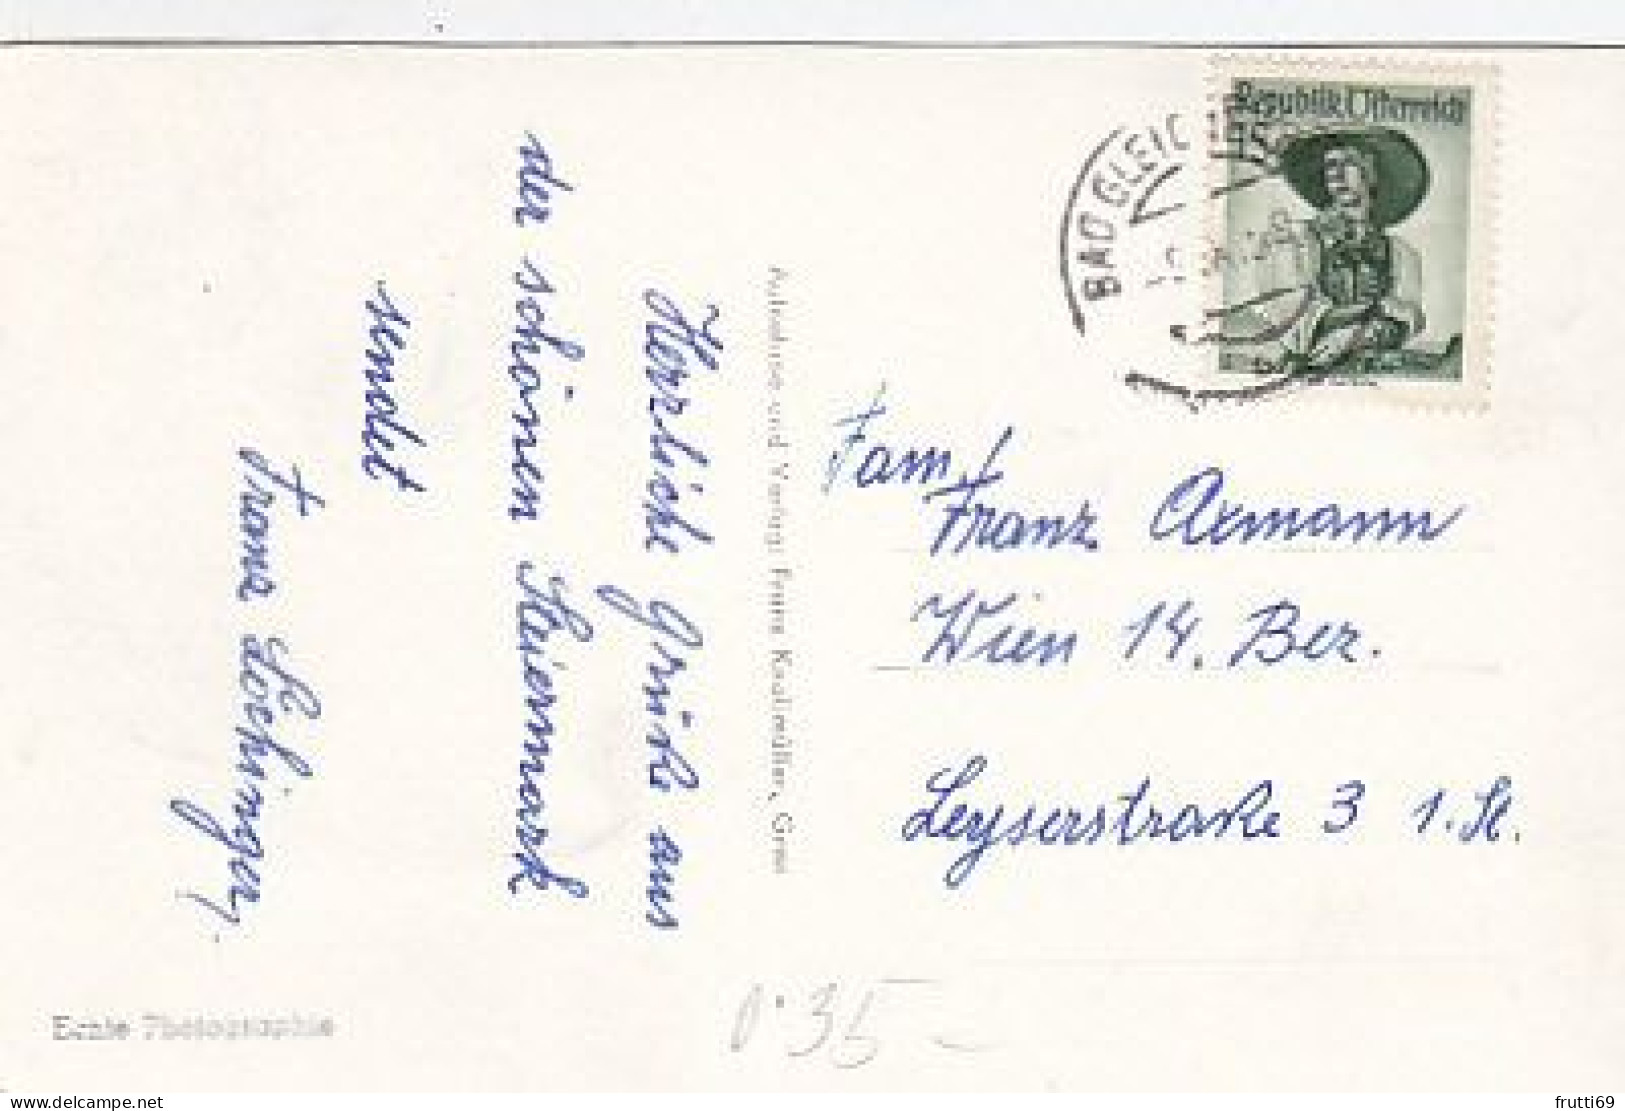 Herzliche Grüße aus
der schönen Steiermark
sendet
Franz Löchinger
Aufnahme und Verlag: Franz Knollmüller, Graz
Echte Photographie
Republik Österreich
BAD GLEIC
Fam.
Franz Axmann
Wien 14. Bez.
Leyserstraße 3 1. St.
0.35
delcampe.net
frutti69